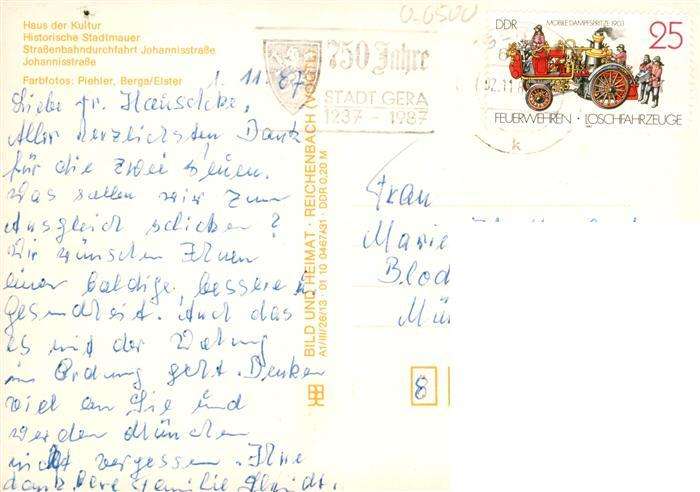 Haus der Kultur
Historische Stadtmauer
Straßenbahndurchfahrt Johannisstraße
Johannisstraße
Farbfotos: Piehler, Berga/Elster
1.11.87
Liebe Fr. Hauschke,
Aller herzlichsten Dank
für die zwei
Was sollen wir zum
Ausgleich schicken?
Wir wünschen Ihnen
einer baldige, bessere
Gesundheit. Auch das
es mit der
in Ordnung geht. Denken
viel an Sie und
werden München
nicht vergessen. Ihre
dankbare Familie
BILD UND HEIMAT · REICHENBACH (VOGTL)
A1/III/26/13 01 10 0467/31 · DDR 0,20 M
0-6500
750 Jahre
STADT GERA
1237 - 1987
DDR MOBILE DAMPFSPRITZE 1903
25
FEUERWEHREN · LÖSCHFAHRZEUGE
k
Frau
Marie
Blod
Mü
8